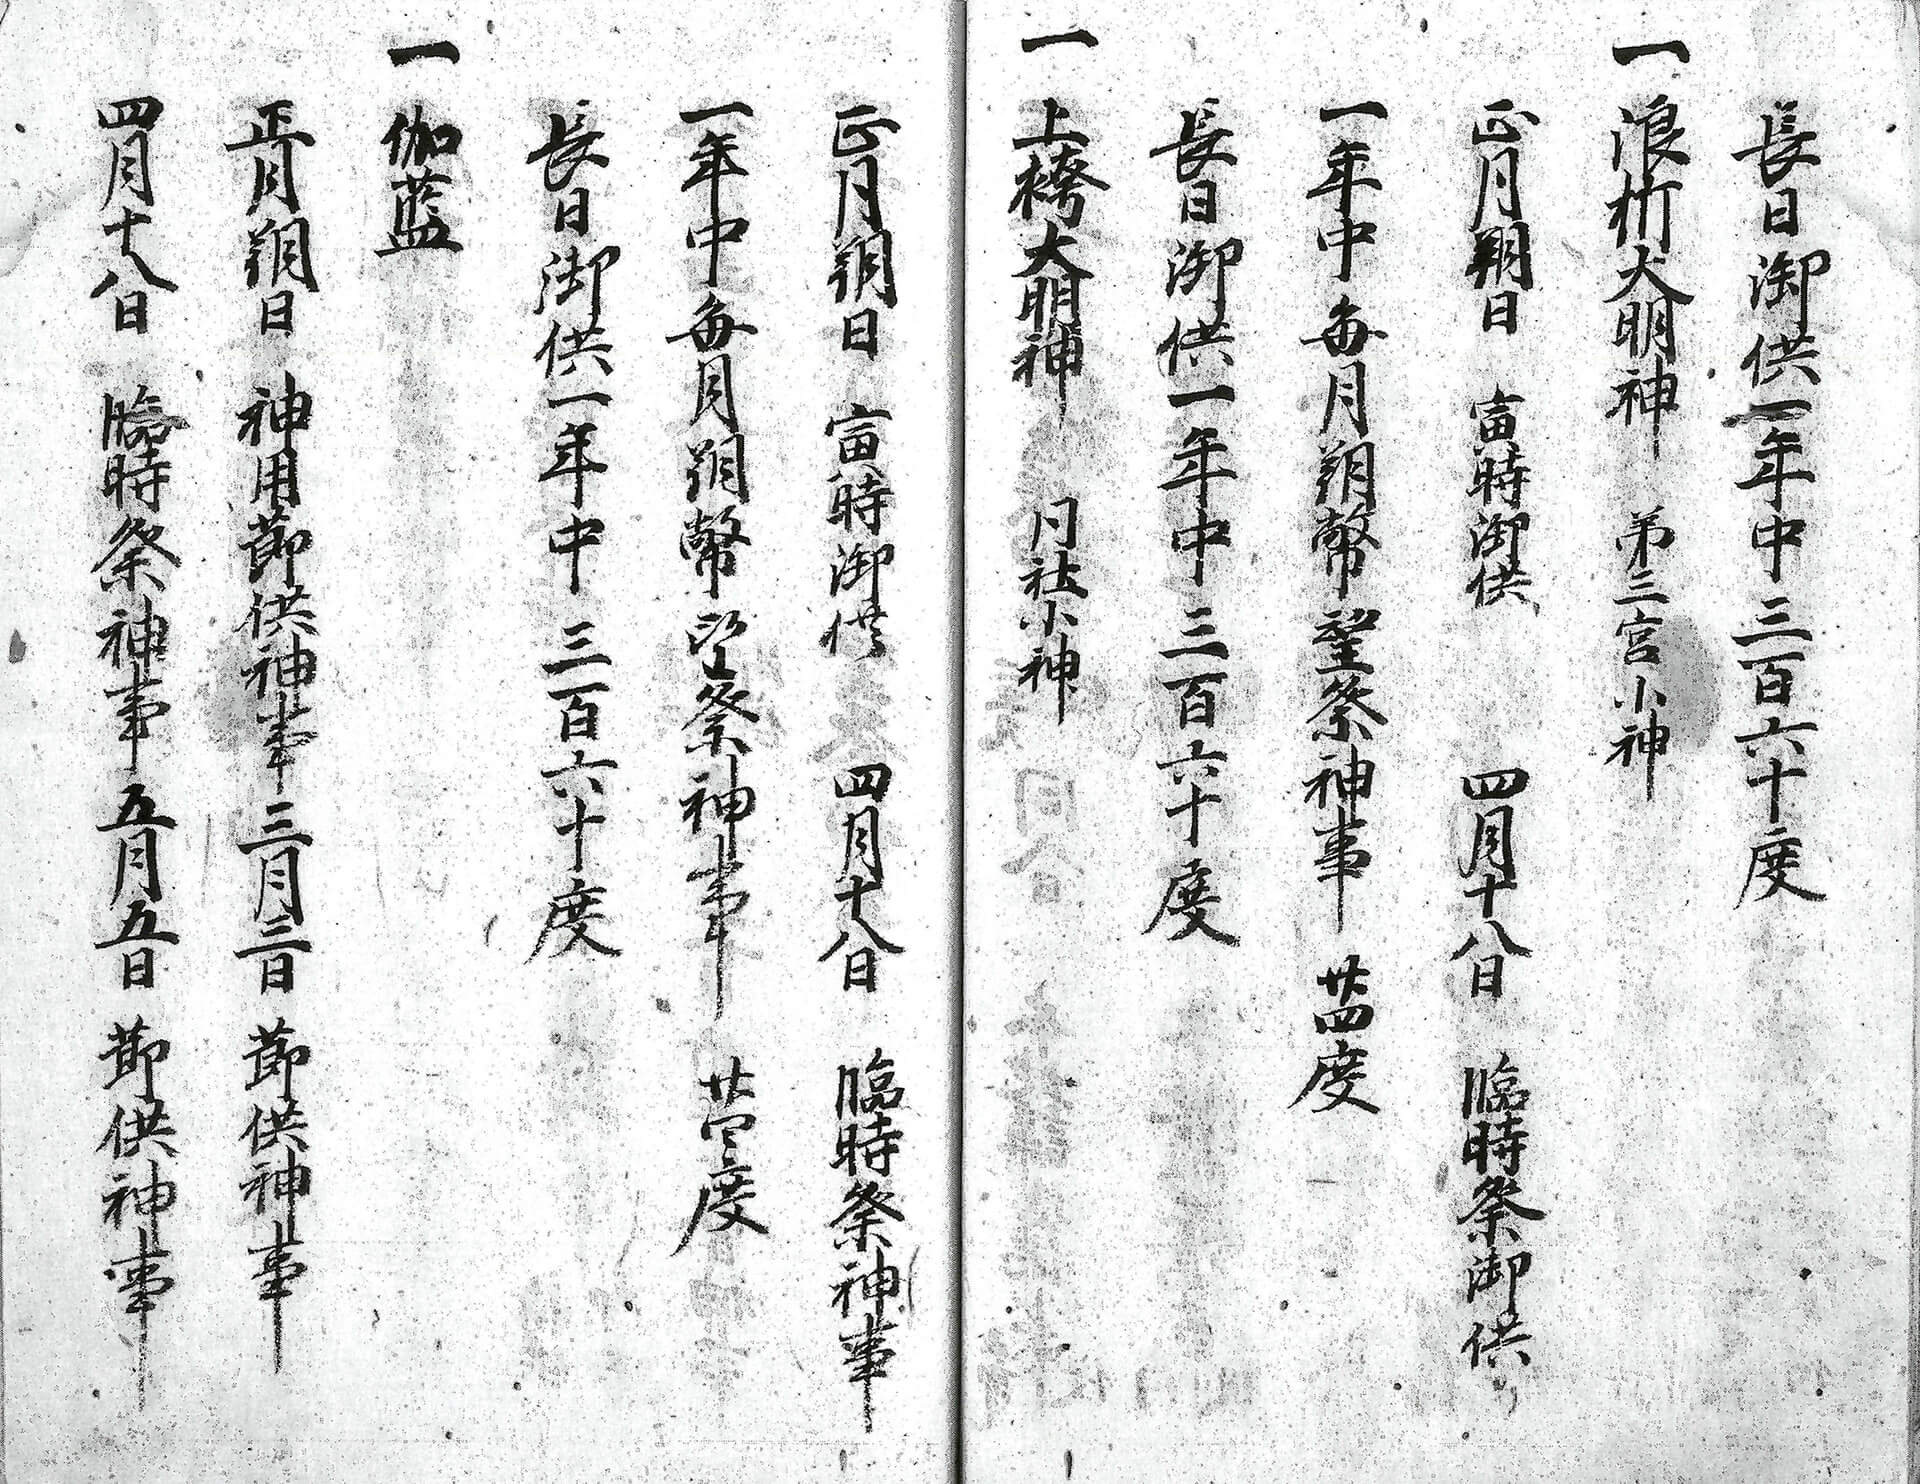 長日御供一年中三百六十度
一 浪折大明神 弟三宮小神
正月朔日 寅時御供 四月十八日 臨時祭御供
一年中毎月朔幣望祭神事 廿四度
長日御供一年中三百六十度
一 上袴大明神 同社小神
正月朔日 寅時御供 四月十八日 臨時祭神事
一年中毎月朔幣望祭神事 廿四度
長日御供一年中三百六十度
一 伽藍
正月朔日 神用節供神事 三月三日 節供神事
四月十八日 臨時祭神事 五月五日 節供神事